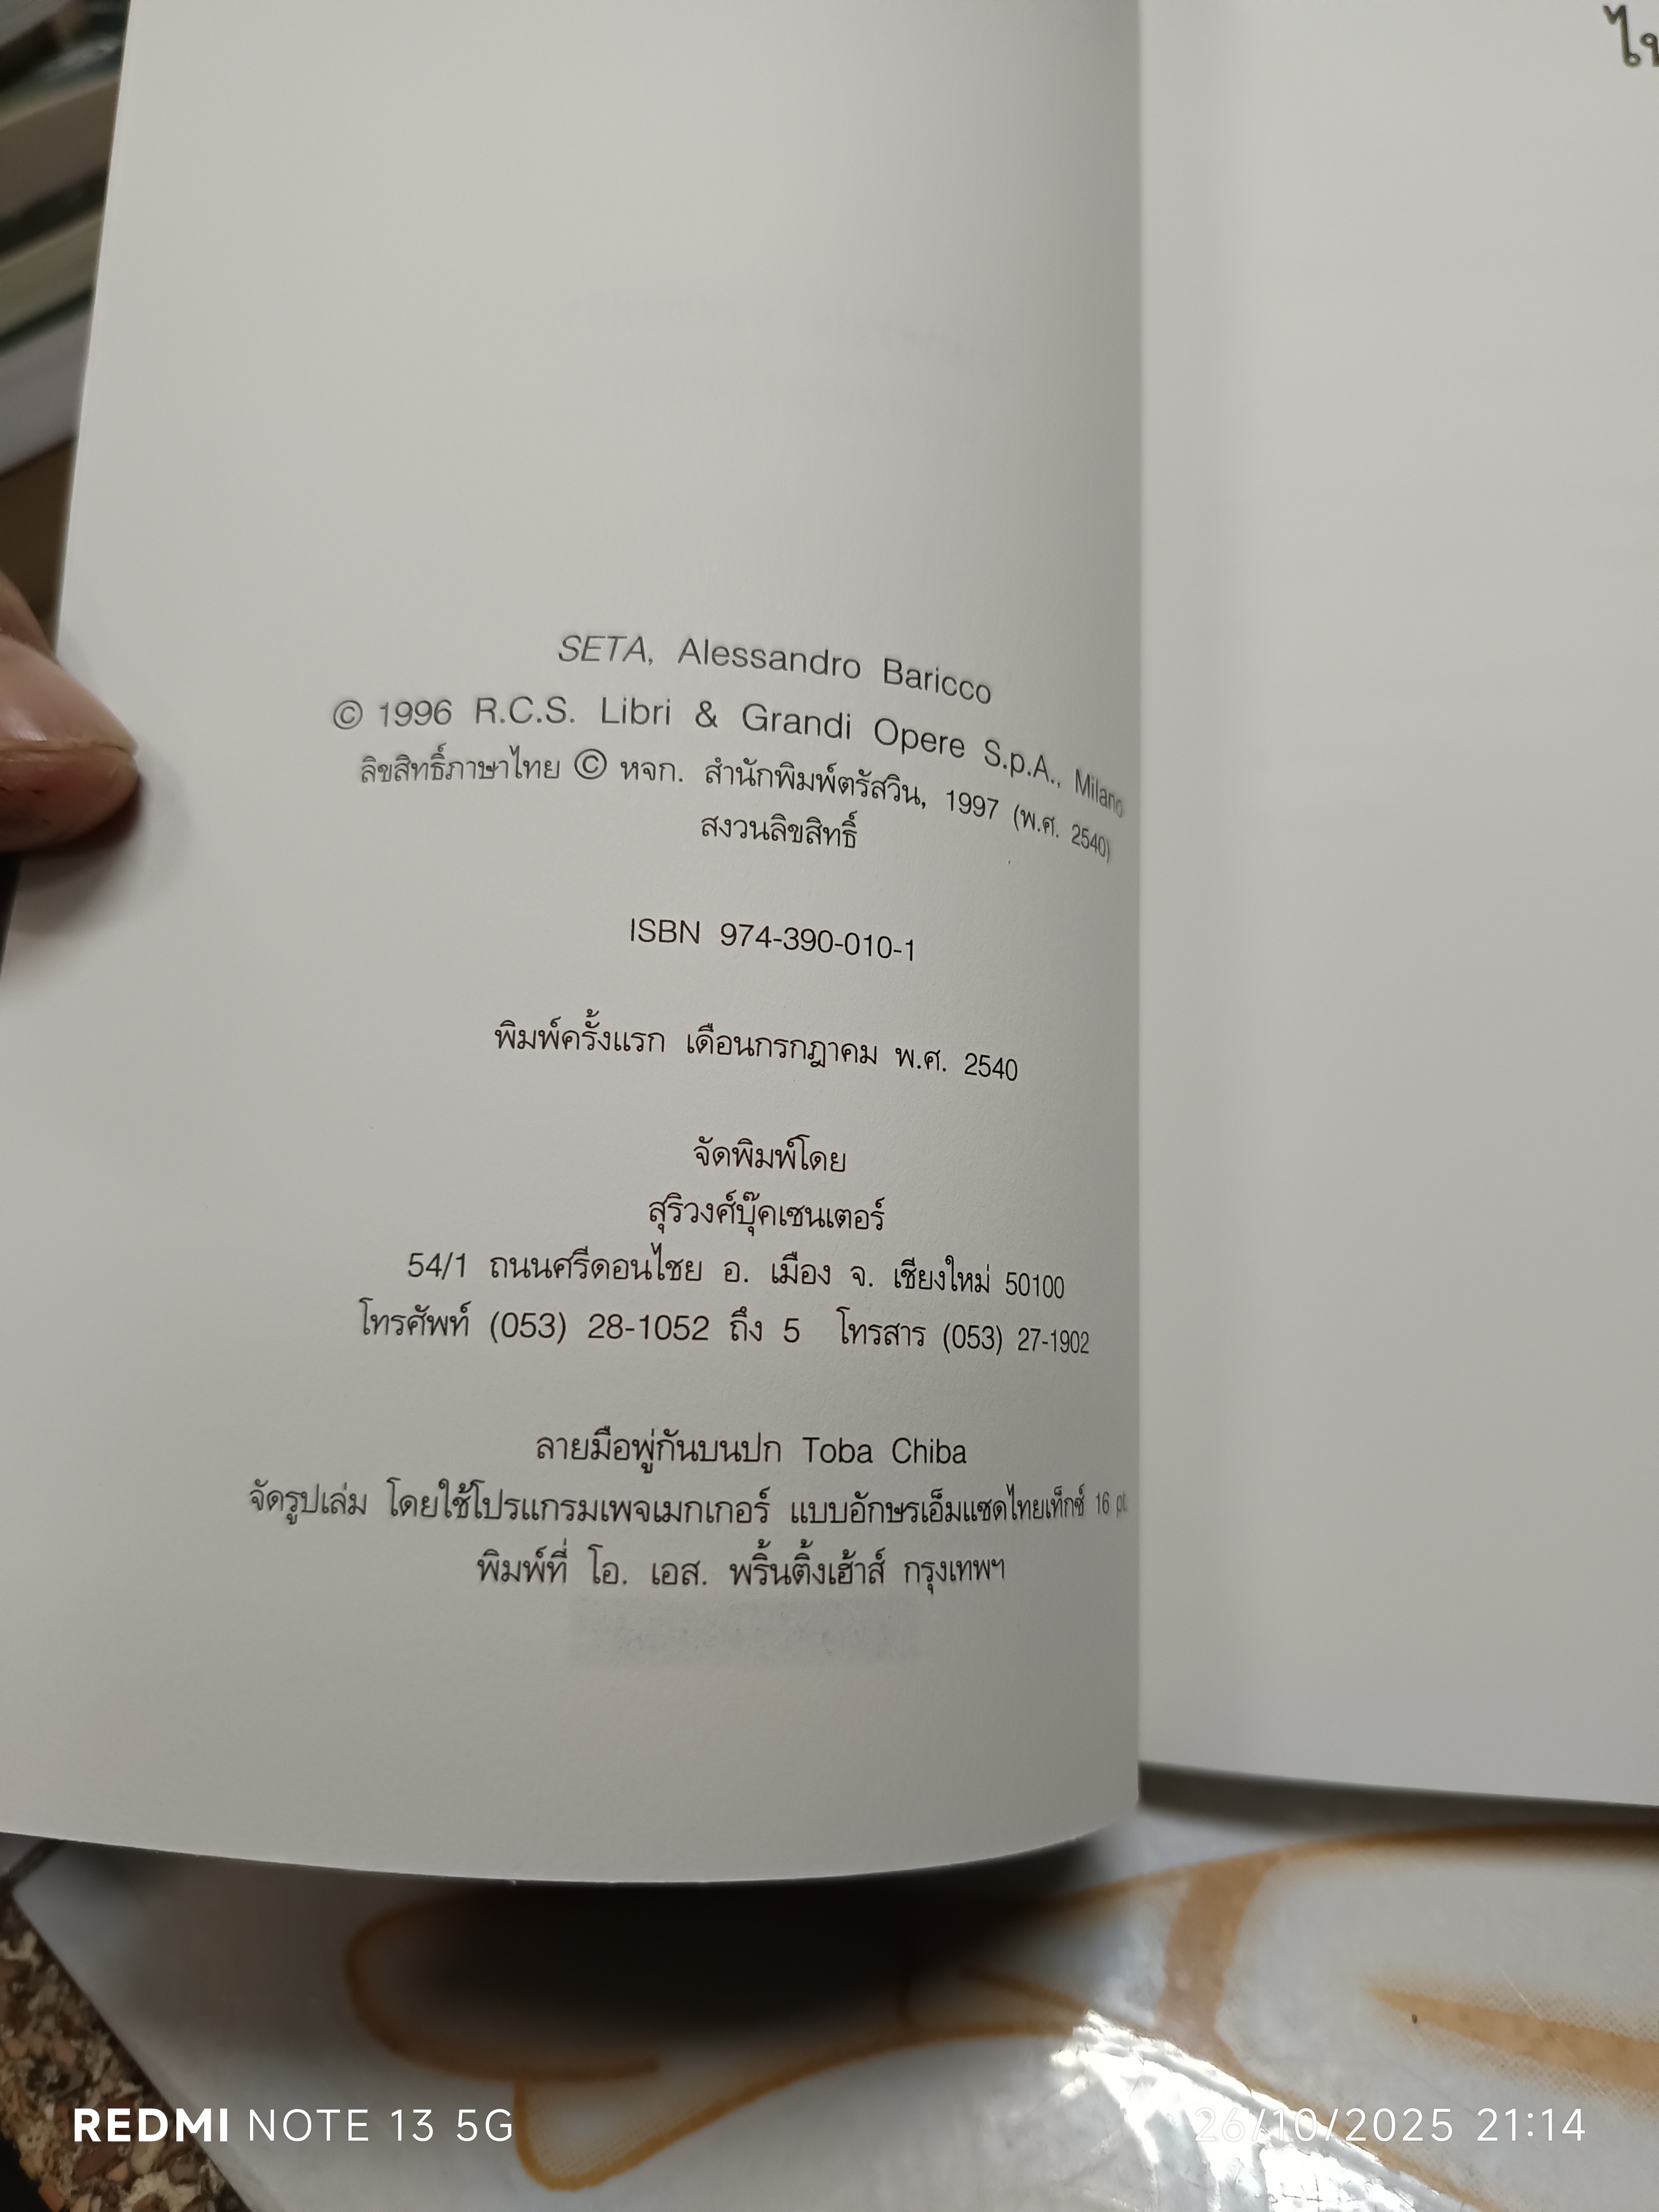 SETA, Alessandro Baricco
© 1996 R.C.S. Libri & Grandi Opere S.p.A., Milano
ลิขสิทธิ์ภาษาไทย © หจก. สำนักพิมพ์ตรัสวิน, 1997 (พ.ศ. 2540)
สงวนลิขสิทธิ์
ISBN 974-390-010-1
พิมพ์ครั้งแรก เดือนกรกฎาคม พ.ศ. 2540
จัดพิมพ์โดย
สุริวงศ์บุ๊คเซนเตอร์
54/1 ถนนศรีดอนไชย อ. เมือง จ. เชียงใหม่ 50100
โทรศัพท์ (053) 28-1052 ถึง 5 โทรสาร (053) 27-1902
ลายมือพู่กันบนปก Toba Chiba
จัดรูปเล่ม โดยใช้โปรแกรมเพจเมกเกอร์ แบบอักษรเอ็มแซดไทยเท็กซ์ 16 pt
พิมพ์ที่ โอ. เอส. พริ้นติ้งเฮ้าส์ กรุงเทพฯ
REDMI NOTE 13 5G
26/10/2025 21:14